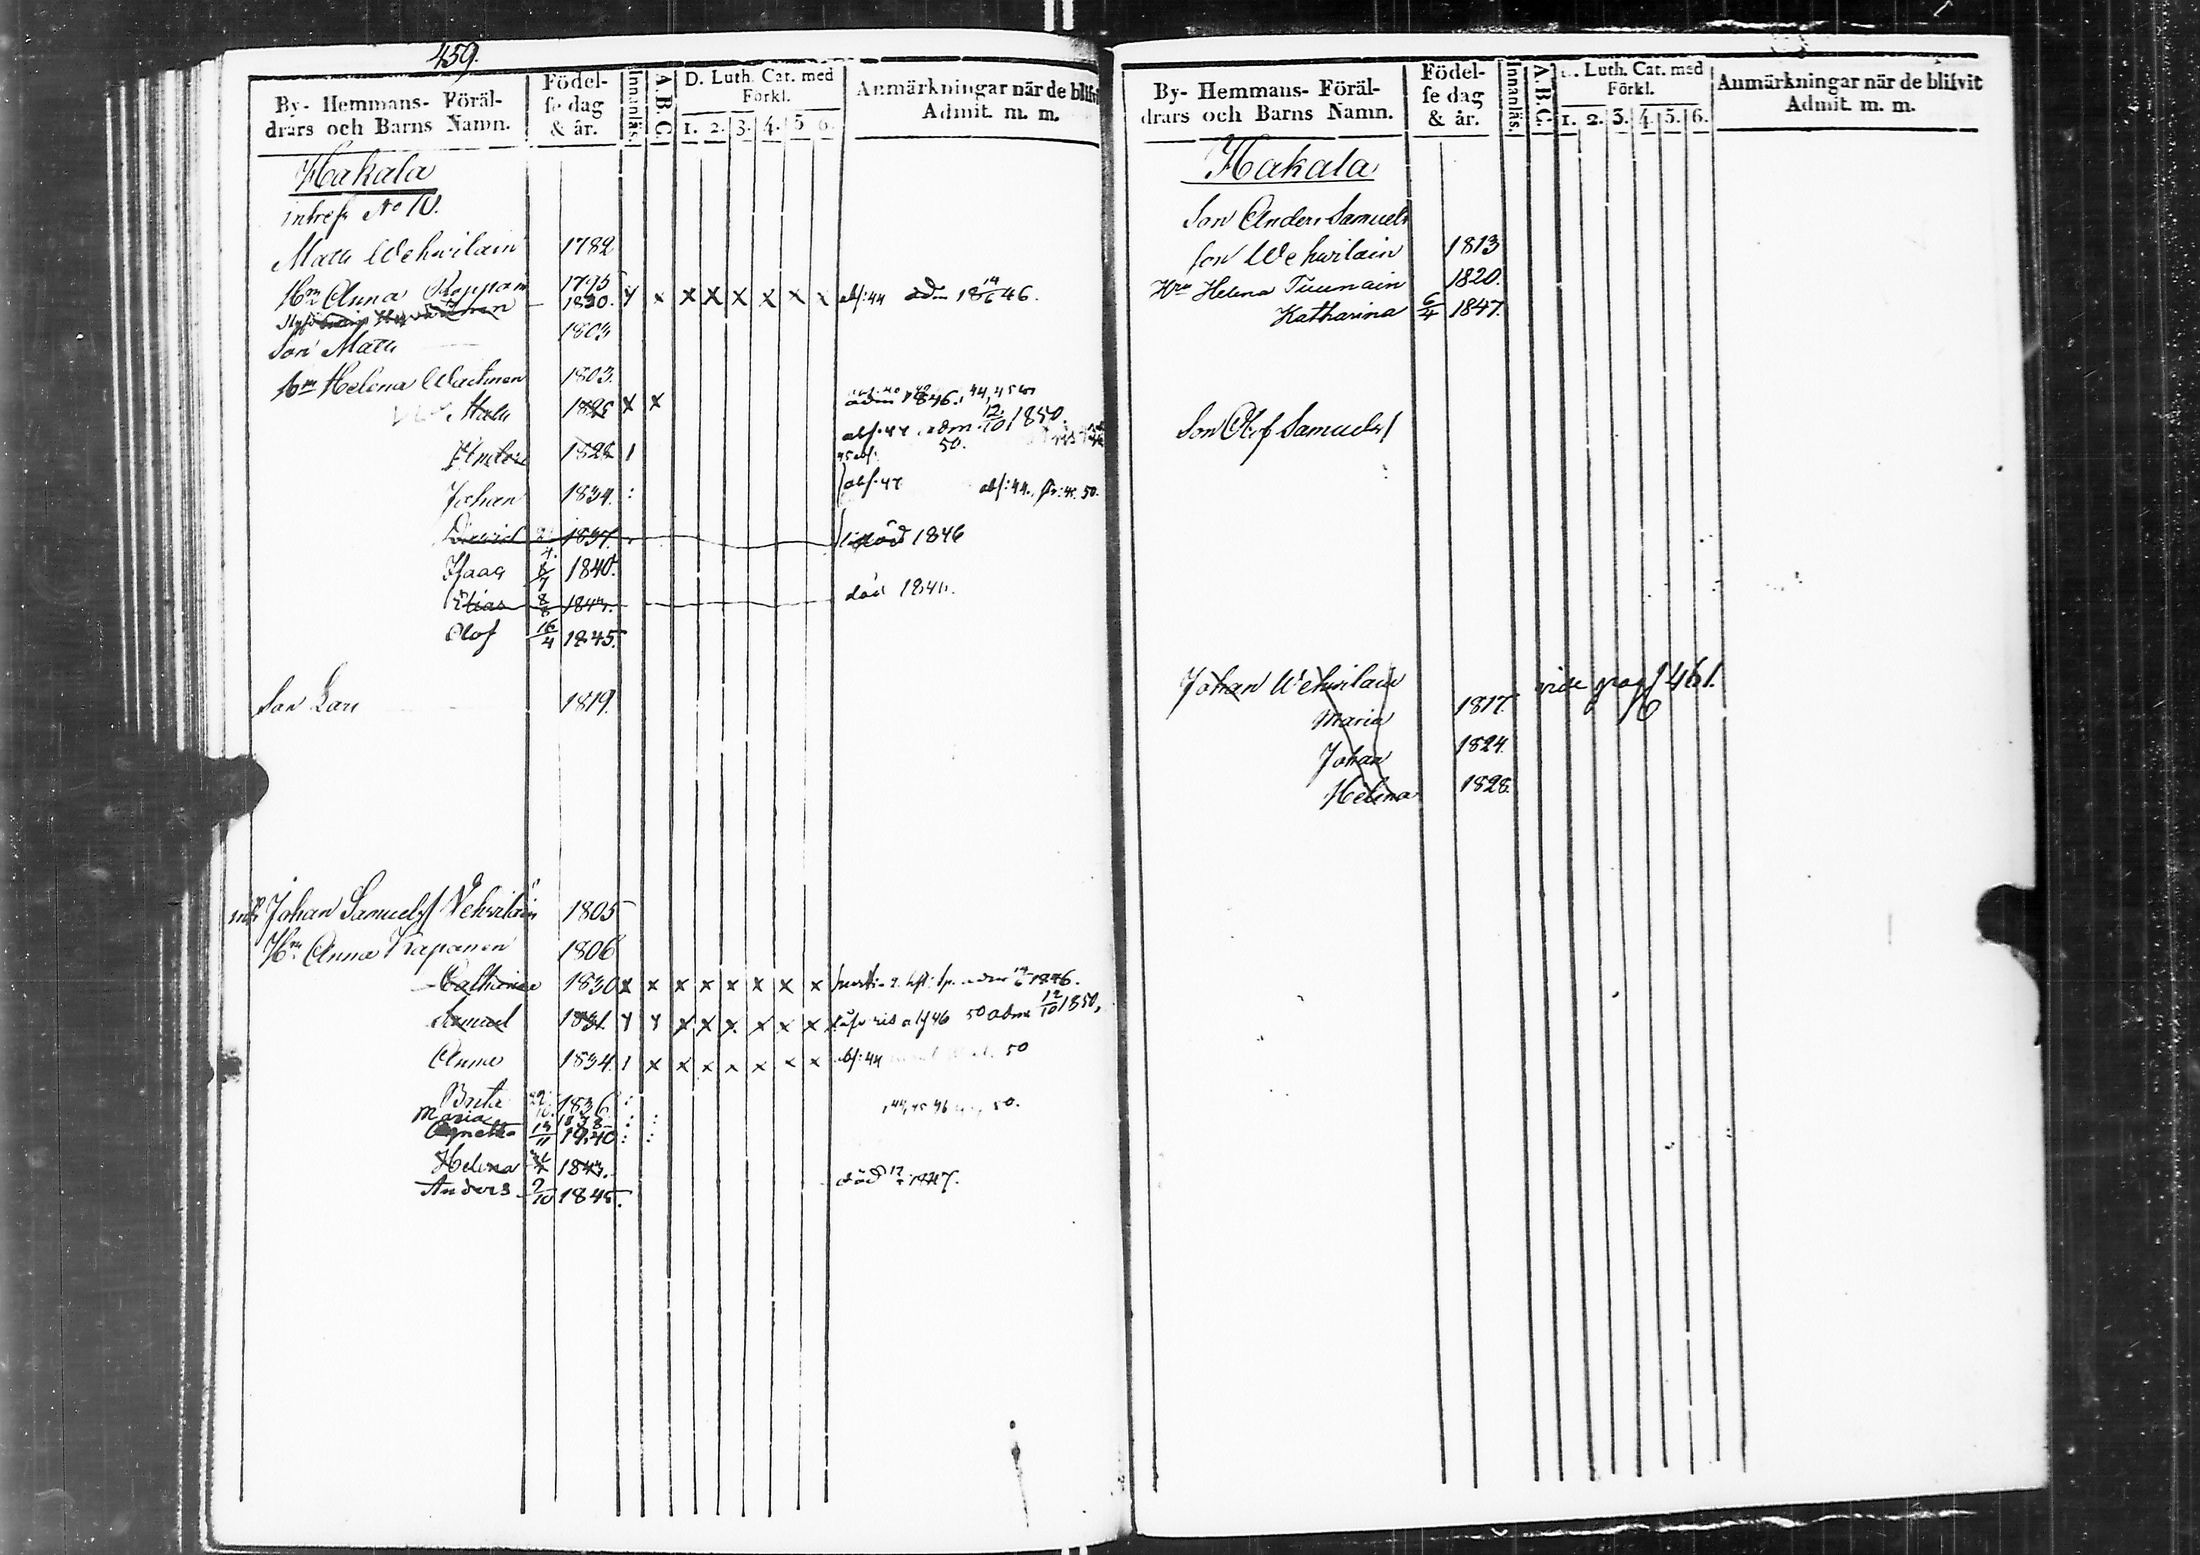 459.
By- Hemmans- Föräl-
drars och Barns Namn.
Födel-
se dag
& år.
Innanläs.
A. B. C.
D. Luth. Cat. med
Förkl.
1. 2. 3. 4. 5 6.
Anmärkningar när de blifvit
Admit. m. m.
Hakala
No 10.
Matts Wehwilain 1782
Hm Anna 1775
1830. x x x x x x x abs: 44 adm 18 14/6 46.
Son Matts 1803
Hm Helena 1803.
Matts 1825 x x 1846. 44, 45
abs. 44 adm. 12/10 1850.
Anders 1828 1 50.
Johan 1834. : abs. 47 abs: 44. 50.
David 1837. död 1846
Isaac 8/7 1840.
Elias 8/8 död
Olof 16/4 1845.
Son Lars 1819.
Johan Samuelss Wehwilain 1805
Hm Anna Kapanen 1806
Catharina 1830 x x x x x x x x 1846.
Samuel 1831. x x x x x x 46 50 adm 12/10 1850,
Anna 1834. 1 x x x x x x x abs: 44 50
Brita 1836 : 50.
Maria 1838
Agnetha 13/11 1840 : :
Helena 1843.
Anders 9/10 1845. död 1847.
By- Hemmans- Föräl-
drars och Barns Namn.
Födel-
se dag
& år.
Innanläs.
A. B. C.
D. Luth. Cat. med
Förkl.
1. 2. 3. 4. 5. 6.
Anmärkningar när de blifvit
Admit. m. m.
Hakala
Son Anders Samuels
son Wehwilain 1813
Hru Helena Tuunain 1820.
Katharina 6/4 1847.
Son Olof Samuelss
Johan Wehwilain vide pag 461.
Maria 1817.
Johan 1824.
Helena 1828.